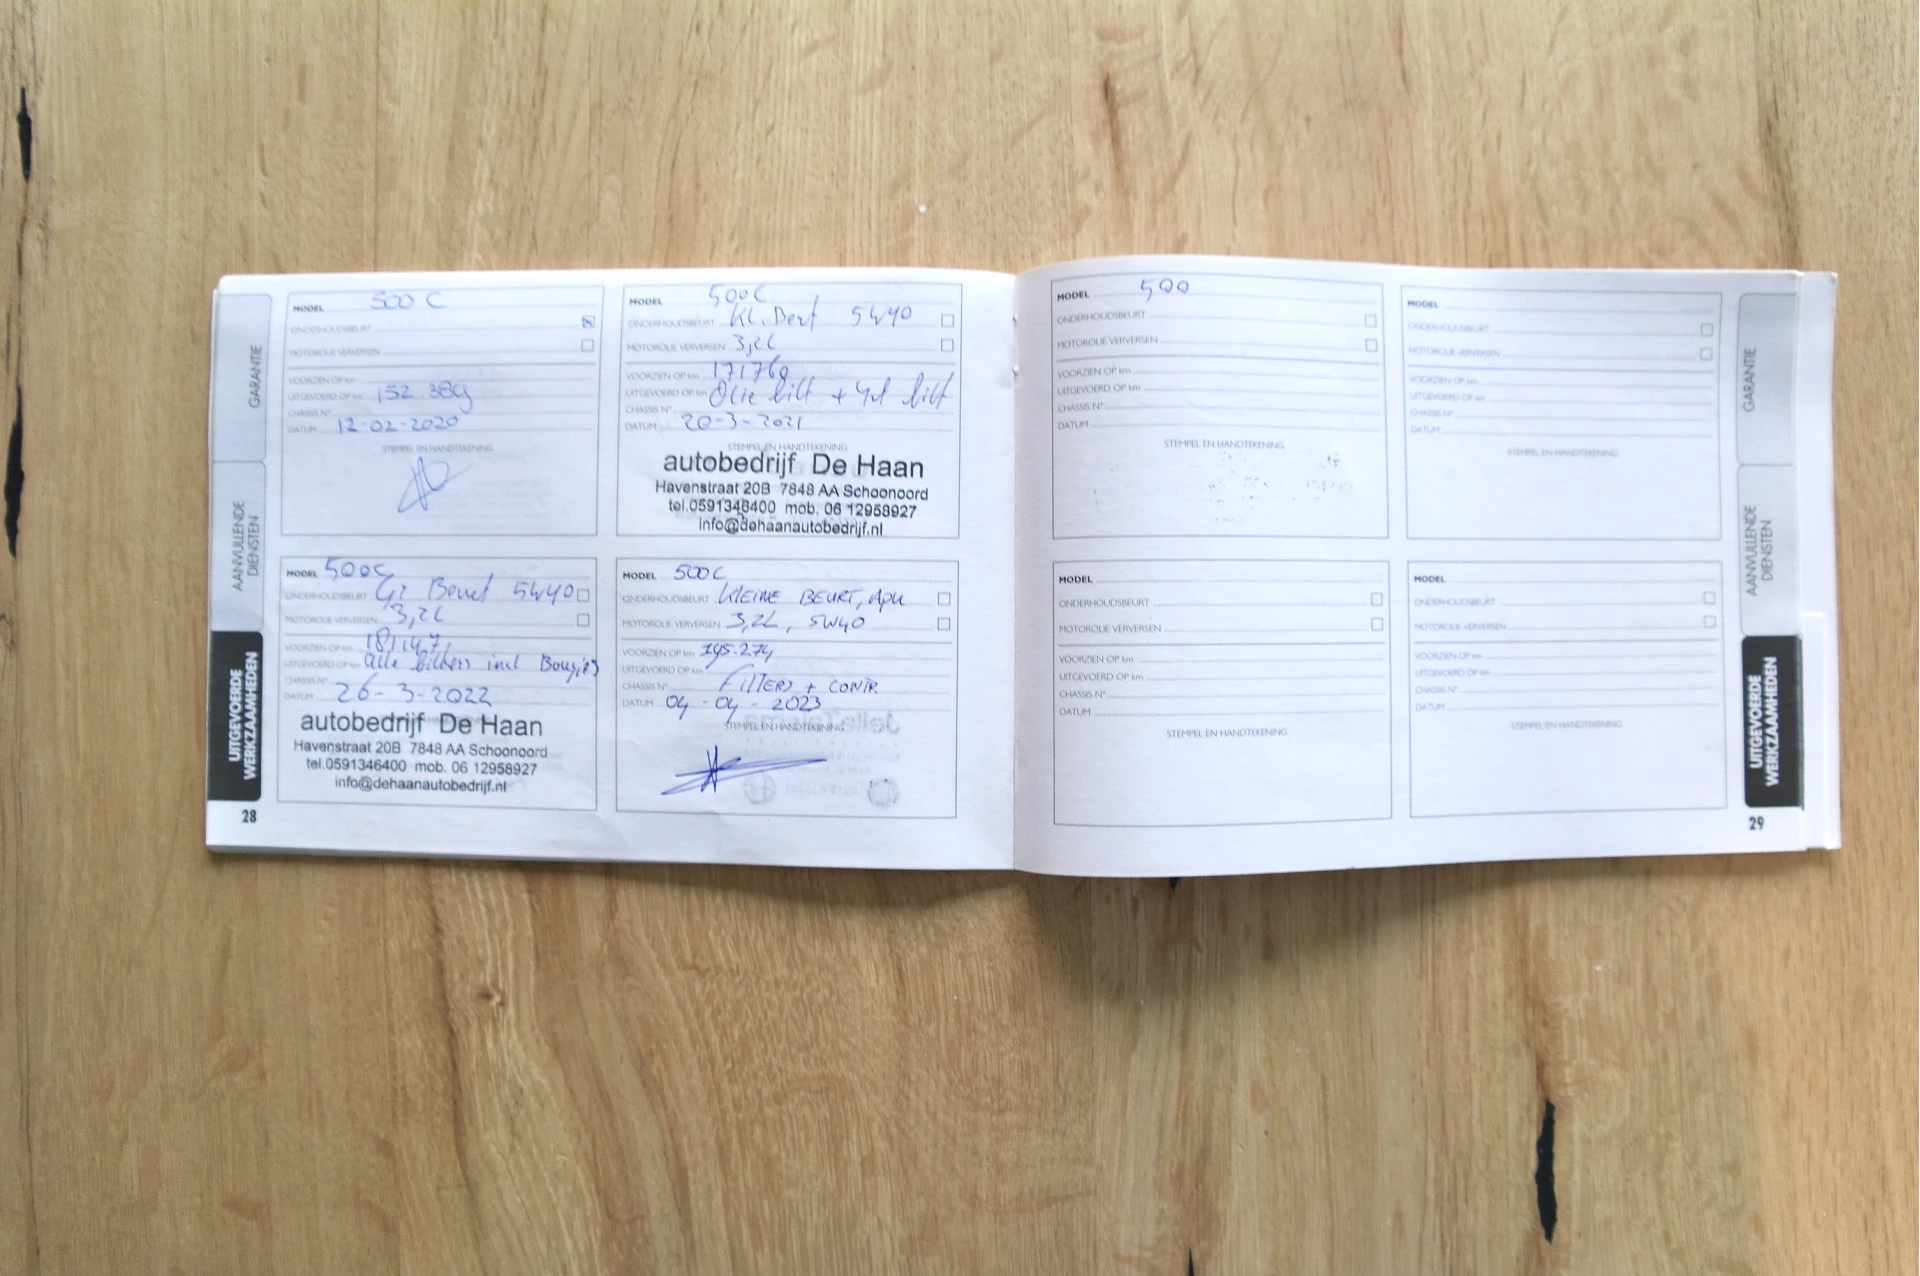 GARANTIE
AANVULLENDE
DIENSTEN
UITGEVOERDE
WERKZAAMHEDEN
28
MODEL 500 C
ONDERHOUDSBEURT
MOTOROLIE VERVERSEN
VOORZIEN OP km
UITGEVOERD OP km 152.389
CHASSIS N°
DATUM 12-02-2020
STEMPEL EN HANDTEKENING
MODEL 500C
ONDERHOUDSBEURT Kl. Beurt 5W40
MOTOROLIE VERVERSEN 3,2L
VOORZIEN OP km 171760
UITGEVOERD OP km Olie filt + filt
CHASSIS N°
DATUM 20-3-2021
STEMPEL EN HANDTEKENING
autobedrijf De Haan
Havenstraat 20B 7848 AA Schoonoord
tel.0591346400 mob. 06 12958927
info@dehaanautobedrijf.nl
MODEL 500C
ONDERHOUDSBEURT Gr Beurt 5W40
MOTOROLIE VERVERSEN 3,2L
VOORZIEN OP km 181147
UITGEVOERD OP km alle filters incl Bougies
CHASSIS N°
DATUM 26-3-2022
autobedrijf De Haan
Havenstraat 20B 7848 AA Schoonoord
tel.0591346400 mob. 06 12958927
info@dehaanautobedrijf.nl
MODEL 500C
ONDERHOUDSBEURT KLEINE BEURT, APK
MOTOROLIE VERVERSEN 3,2L, 5W40
VOORZIEN OP km 195.274
UITGEVOERD OP km
CHASSIS N° FILTERS + CONTR
DATUM 04-04-2023
STEMPEL EN HANDTEKENING
MODEL 500
ONDERHOUDSBEURT
MOTOROLIE VERVERSEN
VOORZIEN OP km
UITGEVOERD OP km
CHASSIS N°
DATUM
STEMPEL EN HANDTEKENING
MODEL
ONDERHOUDSBEURT
MOTOROLIE VERVERSEN
VOORZIEN OP km
UITGEVOERD OP km
CHASSIS N°
DATUM
STEMPEL EN HANDTEKENING
MODEL
ONDERHOUDSBEURT
MOTOROLIE VERVERSEN
VOORZIEN OP km
UITGEVOERD OP km
CHASSIS N°
DATUM
STEMPEL EN HANDTEKENING
MODEL
ONDERHOUDSBEURT
MOTOROLIE VERVERSEN
VOORZIEN OP km
UITGEVOERD OP km
CHASSIS N°
DATUM
STEMPEL EN HANDTEKENING
GARANTIE
AANVULLENDE
DIENSTEN
UITGEVOERDE
WERKZAAMHEDEN
29